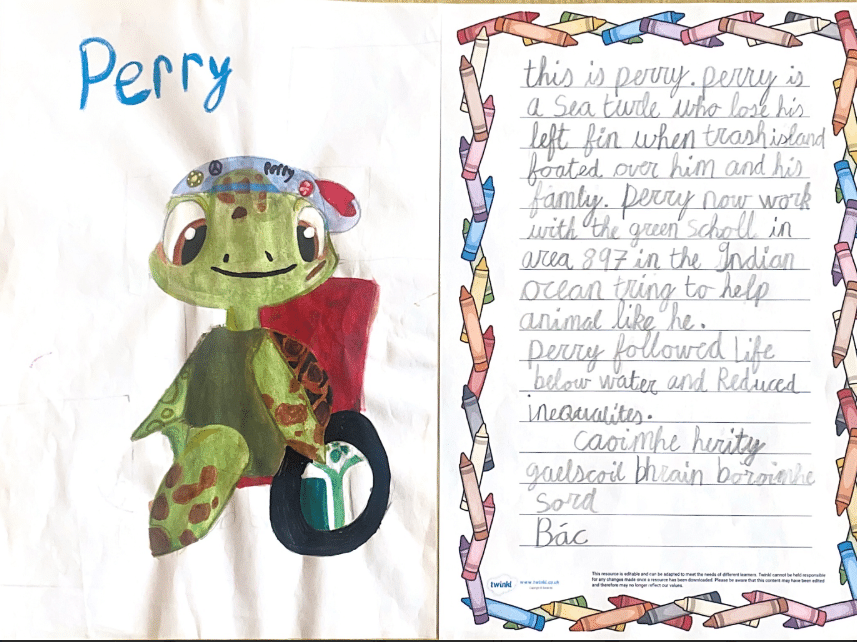 Perry
perry
this is perry. perry is
a Sea turle who lose his
left fin when trash island
foated over him and his
famly. perry now work
with the green Scholl in
area 897 in the Indian
ocean tring to help
animal like he.
perry followed Life
below water and Reduced
inequalites.
caoimhe herity
gaelscoil bhrain bóroimhe
Sord
Bác
twinkl
www.twinkl.co.uk
This resource is editable and can be adapted to meet the needs of different learners. Twinkl cannot be held responsible
for any changes made once a resource has been downloaded. Please be aware that this content may have been edited
and therefore may no longer reflect our values.